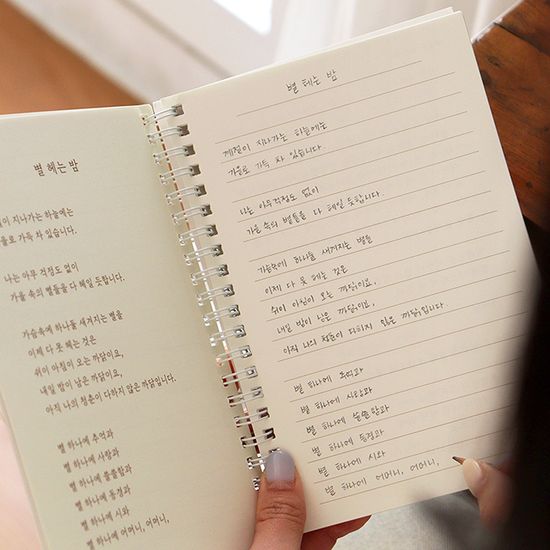 별 헤는 밤
이 지나가는 하늘에는
을로 가득 차 있습니다.
나는 아무 걱정도 없이
가을 속의 별들을 다 헤일 듯합니다.
가슴속에 하나둘 새겨지는 별을
이제 다 못 헤는 것은
쉬이 아침이 오는 까닭이요,
내일 밤이 남은 까닭이요,
아직 나의 청춘이 다하지 않은 까닭입니다.
별 하나에 추억과
별 하나에 사랑과
별 하나에 쓸쓸함과
별 하나에 동경과
별 하나에 시와
별 하나에 어머니, 어머니,
별 헤는 밤
계절이 지나가는 하늘에는
가을로 가득 차 있습니다.
나는 아무 걱정도 없이
가을 속의 별들을 다 헤일 듯합니다.
가슴속에 하나둘 새겨지는 별을
이제 다 못 헤는 것은
쉬이 아침이 오는 까닭이요,
내일 밤이 남은 까닭이요,
아직 나의 청춘이 다하지 않은 까닭입니다.
별 하나에 추억과
별 하나에 사랑과
별 하나에 쓸쓸함과
별 하나에 동경과
별 하나에 시와
별 하나에 어머니, 어머니,